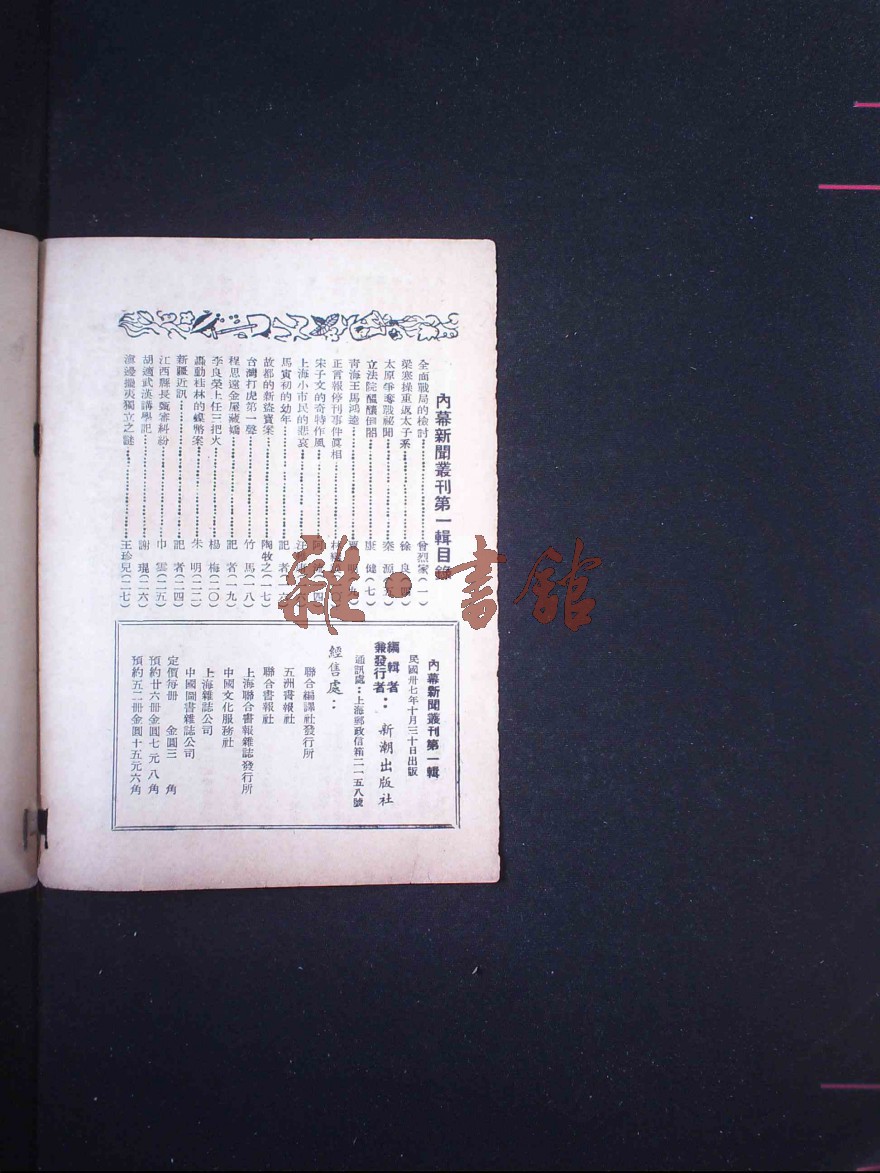 內幕新聞叢刊第一輯目錄
全面戰局的檢討 曾烈家(一)
梁寒操重返太子系 徐良(四)
太原爭奪戰祕聞 秦源(五)
立法院醞釀倒閣 康健(七)
青海王馬鴻逵
正言報停刊事件眞相
宋子文的奇特作風
上海小市民的悲哀
馬寅初的幼年 記者
故都的新盜寶案 陶牧之(一七)
台灣打虎第一聲 竹馬(一八)
程思遠金屋藏嬌 記者(一九)
李良榮上任三把火 楊梅(二〇)
轟動桂林的鎳幣案 朱明(二二)
新疆近訊 記者(二四)
江西縣長甄審糾紛 巾雲(二五)
胡適武漢講學記 謝琨(二六)
滇邊擺夷獨立之謎 王珍兒(二七)
內幕新聞叢刊第一輯
民國卅七年十月三十日出版
編輯者兼發行者：新潮出版社
通訊處：上海郵政信箱二一五八號
經售處：
聯合編譯社發行所
五洲書報社
聯合書報社
上海聯合書報雜誌發行所
中國文化服務社
上海雜誌公司
中國圖書雜誌公司
定價每冊 金圓三角
預約廿六冊金圓七元八角
預約五二冊金圓十五元六角
雜·書館